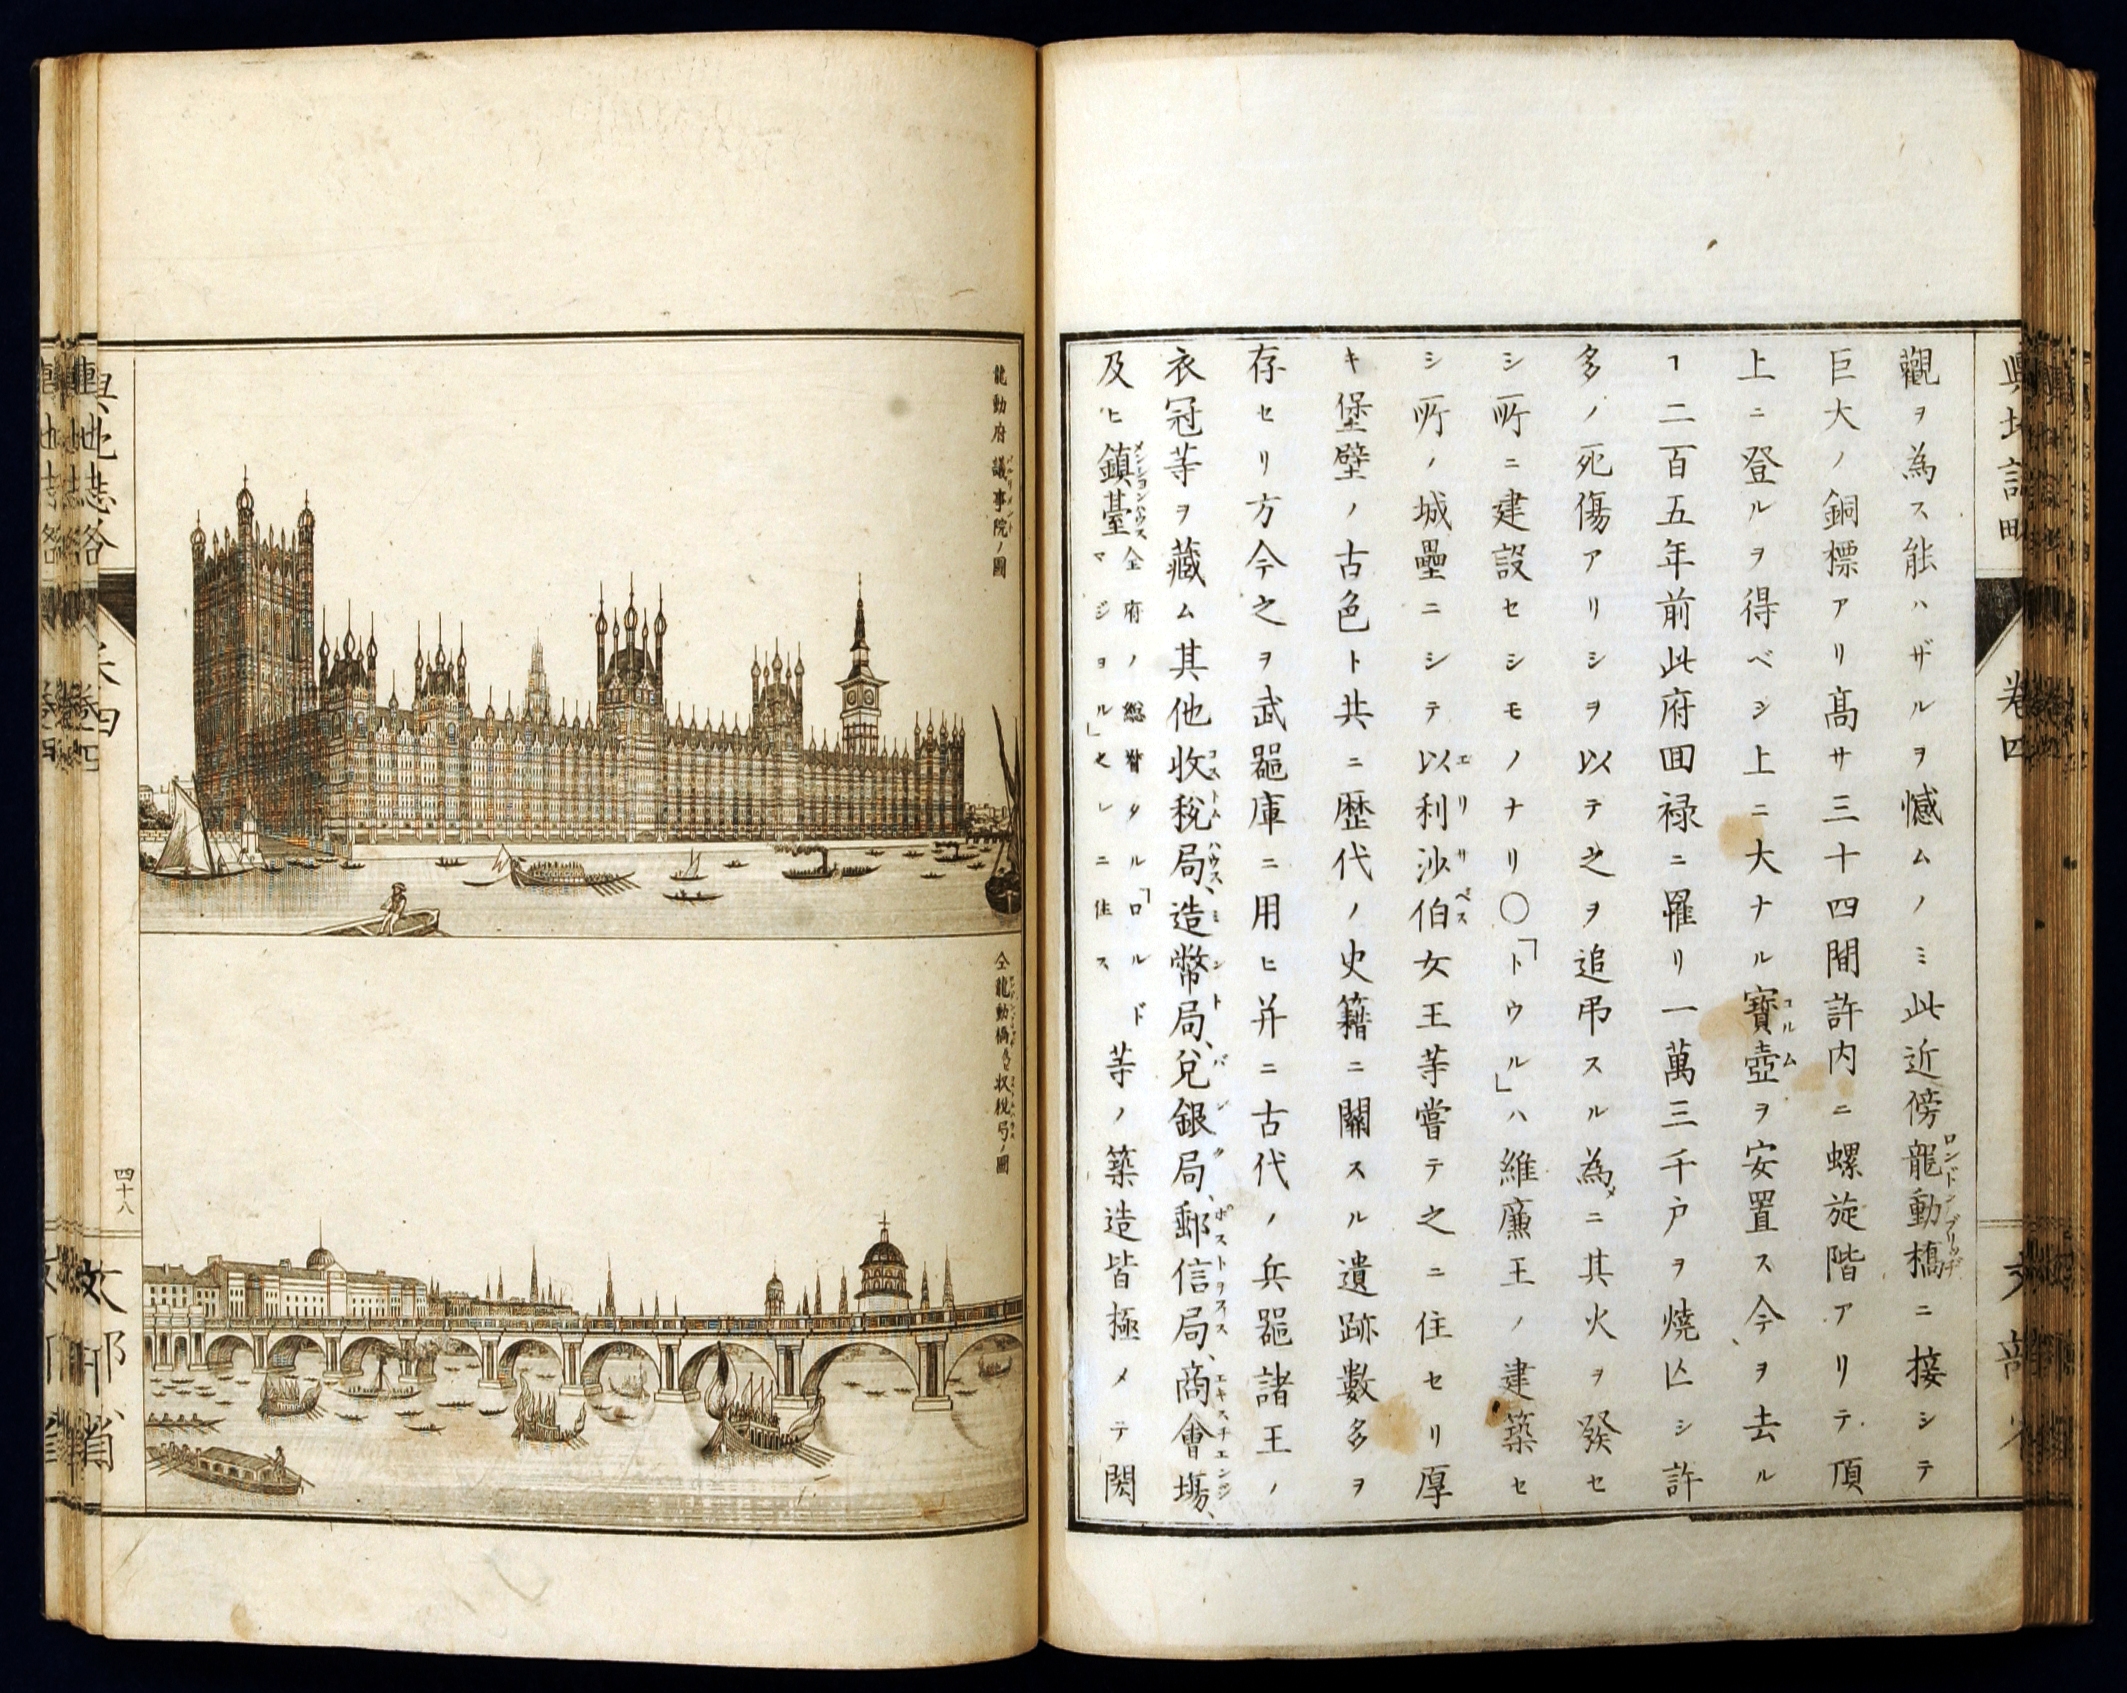 觀ヲ為ス能ハザルヲ憾ムノミ此近傍龍動橋ニ接シテ
巨大ノ銅標アリ髙サ三十四間許内ニ螺旋階アリテ頂
上ニ登ルヲ得ベシ上ニ大ナル寶壺ヲ安置ス今ヲ去ル
ヿ二百五年前此府回禄ニ罹リ一萬三千戸ヲ燒亾シ許
多ノ死傷アリシヲ以テ之ヲ追弔スル為メニ其火ヲ發セ
シ所ニ建設セシモノナリ〇「トウル」ハ維廉王ノ建築セ
シ所ノ城壘ニシテ以利沙伯女王等嘗テ之ニ住セリ厚
キ堡壁ノ古色ト共ニ歴代ノ史籍ニ關スル遺跡數多ヲ
存セリ方今之ヲ武噐庫ニ用ヒ并ニ古代ノ兵噐諸王ノ
衣冠等ヲ藏ム其他收稅局、造幣局、兌銀局、郵信局、商會塲、
及ヒ鎮臺全府ノ總督タル「ロルドマジヨル」之レニ住ス等ノ築造皆極メテ閎
龍動府議事院ノ圖
仝龍動橋及ヒ収稅局ノ圖
輿地誌略
卷四
四十八
文部省